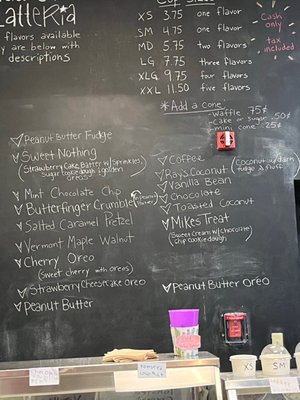 Latteria
flavors available
y are below with
descriptions
Cup Sizes
XS 3.75 one flavor
SM 4.75 one flavor
MD 5.75 two flavors
LG 7.75 three flavors
XLG 9.75 four flavors
XXL 11.50 five flavors
*Add a cone
-Waffle 75¢
-cake or sugar .50¢
-mini cone .25¢
Cash
only
tax
included
Peanut Butter Fudge
Sweet Nothing
(Strawberry Cake Batter w/ Sprinkles,
Sugar cookie dough & golden
oreos)
Mint Chocolate Chip
Butterfinger Crumble
Salted Caramel Pretzel
Vermont Maple Walnut
Cherry Oreo
(sweet cherry with oreos)
Strawberry Cheesecake Oreo
Peanut Butter
Coffee
Ray's Coconut (Coconut w/ dark
fudge & fluff)
Vanilla Bean
Chocolate
Toasted Coconut
Mikes Treat
(Sweet Cream w/ chocolate
chip cookie dough)
Peanut Butter Oreo
XS
SM